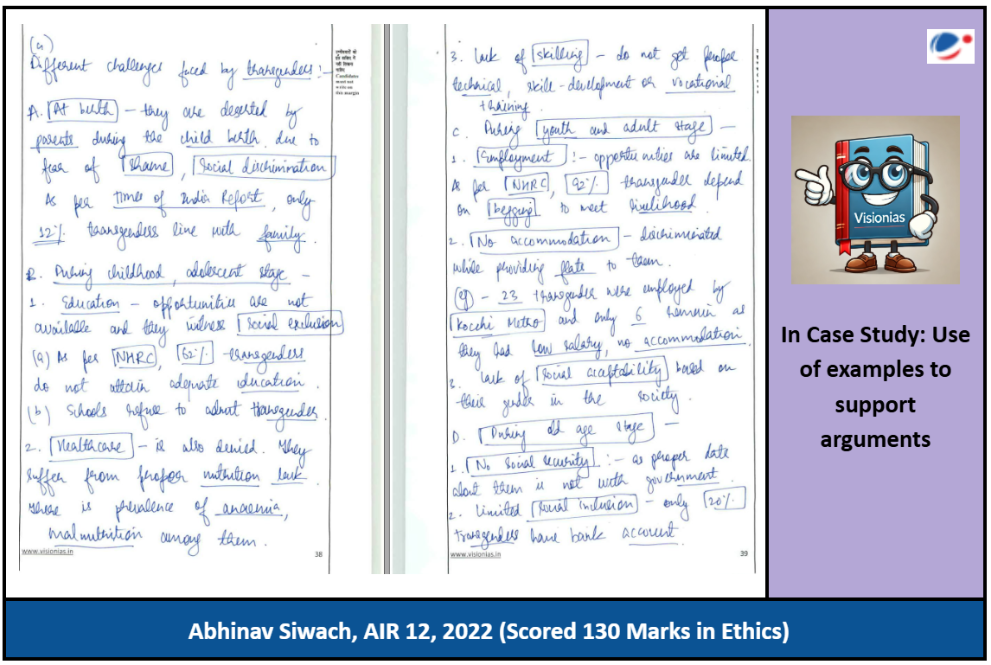 (a)
Different challenges faced by transgenders :-
A. At birth - they are deserted by
parents during the child birth due to
fear of shame, Social discrimination
As per Times of India Report, only
12% transgenders live with family.
B. During childhood, adolescent stage -
1. Education - opportunities are not
available and they witness social exclusion
(a) As per NHRC, 62% transgenders
do not attain adequate education.
(b) Schools refuse to admit transgender.
2. Healthcare - is also denied. They
suffer from proper nutrition lack.
There is prevalence of anaemia,
malnutrition among them.
www.visionias.in
38
उम्मीदवारों को
इस हाशिये में
नहीं लिखना
चाहिए
Candidates
must not
write on
this margin
3. Lack of skilling - do not get proper
technical, skill-development or vocational
training.
C. During youth and adult stage -
1. Employment :- opportunities are limited.
As per NHRC, 92% transgender depend
on begging to meet livelihood.
2. No accommodation - discriminated
while providing flats to them.
eg - 23 transgender were employed by
Kocchi Metro and only 6 remain as
they had low salary, no accommodation.
3. Lack of social acceptability based on
their gender in the society.
D. During old age stage -
1. No Social Security :- as proper data
about them is not with government.
2. Limited social inclusion - only 20%
transgenders have bank account.
www.visionias.in
39
Visionias
In Case Study: Use
of examples to
support
arguments
Abhinav Siwach, AIR 12, 2022 (Scored 130 Marks in Ethics)